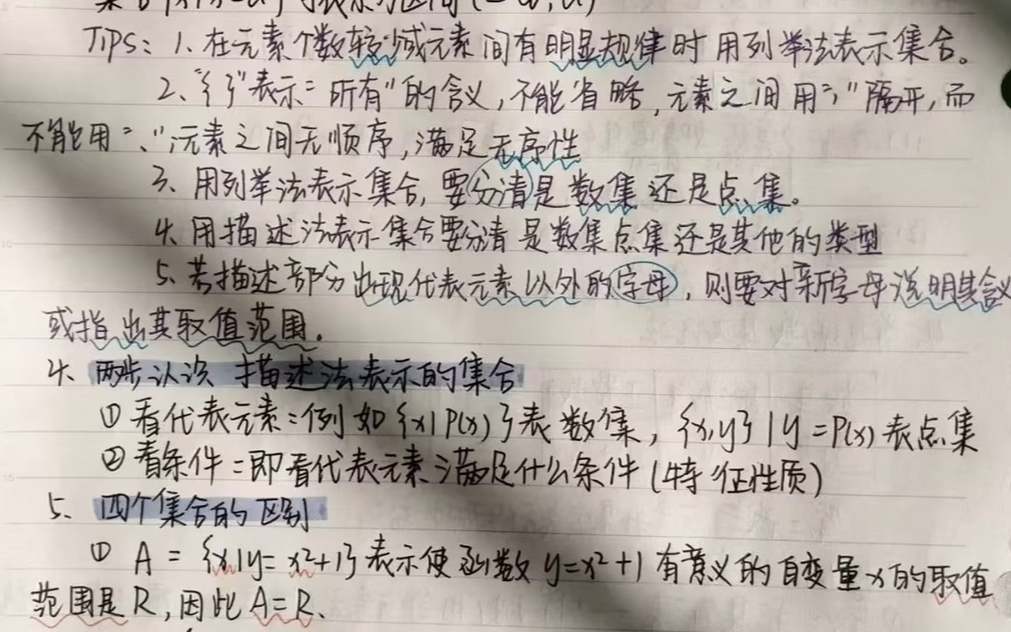 Tips: 1. 在元素个数较少或元素间有明显规律时用列举法表示集合。
2、"{ }"表示"所有"的含义,不能省略,元素之间用","隔开,而
不能用"、";元素之间无顺序,满足无序性
3、用列举法表示集合,要分清是数集还是点集。
4. 用描述法表示集合要分清是数集点集还是其他的类型
5. 若描述部分出现代表元素以外的字母,则要对新字母说明其含义
或指出其取值范围。
4. 两步认识描述法表示的集合
① 看代表元素:例如{x|P(x)}表数集,{x,y}|y=P(x)表点集
② 看条件:即看代表元素满足什么条件(特征性质)
5、四个集合的区别
① A={x|y=x²+1}表示使函数y=x²+1有意义的自变量x的取值
范围是R,因此A=R、